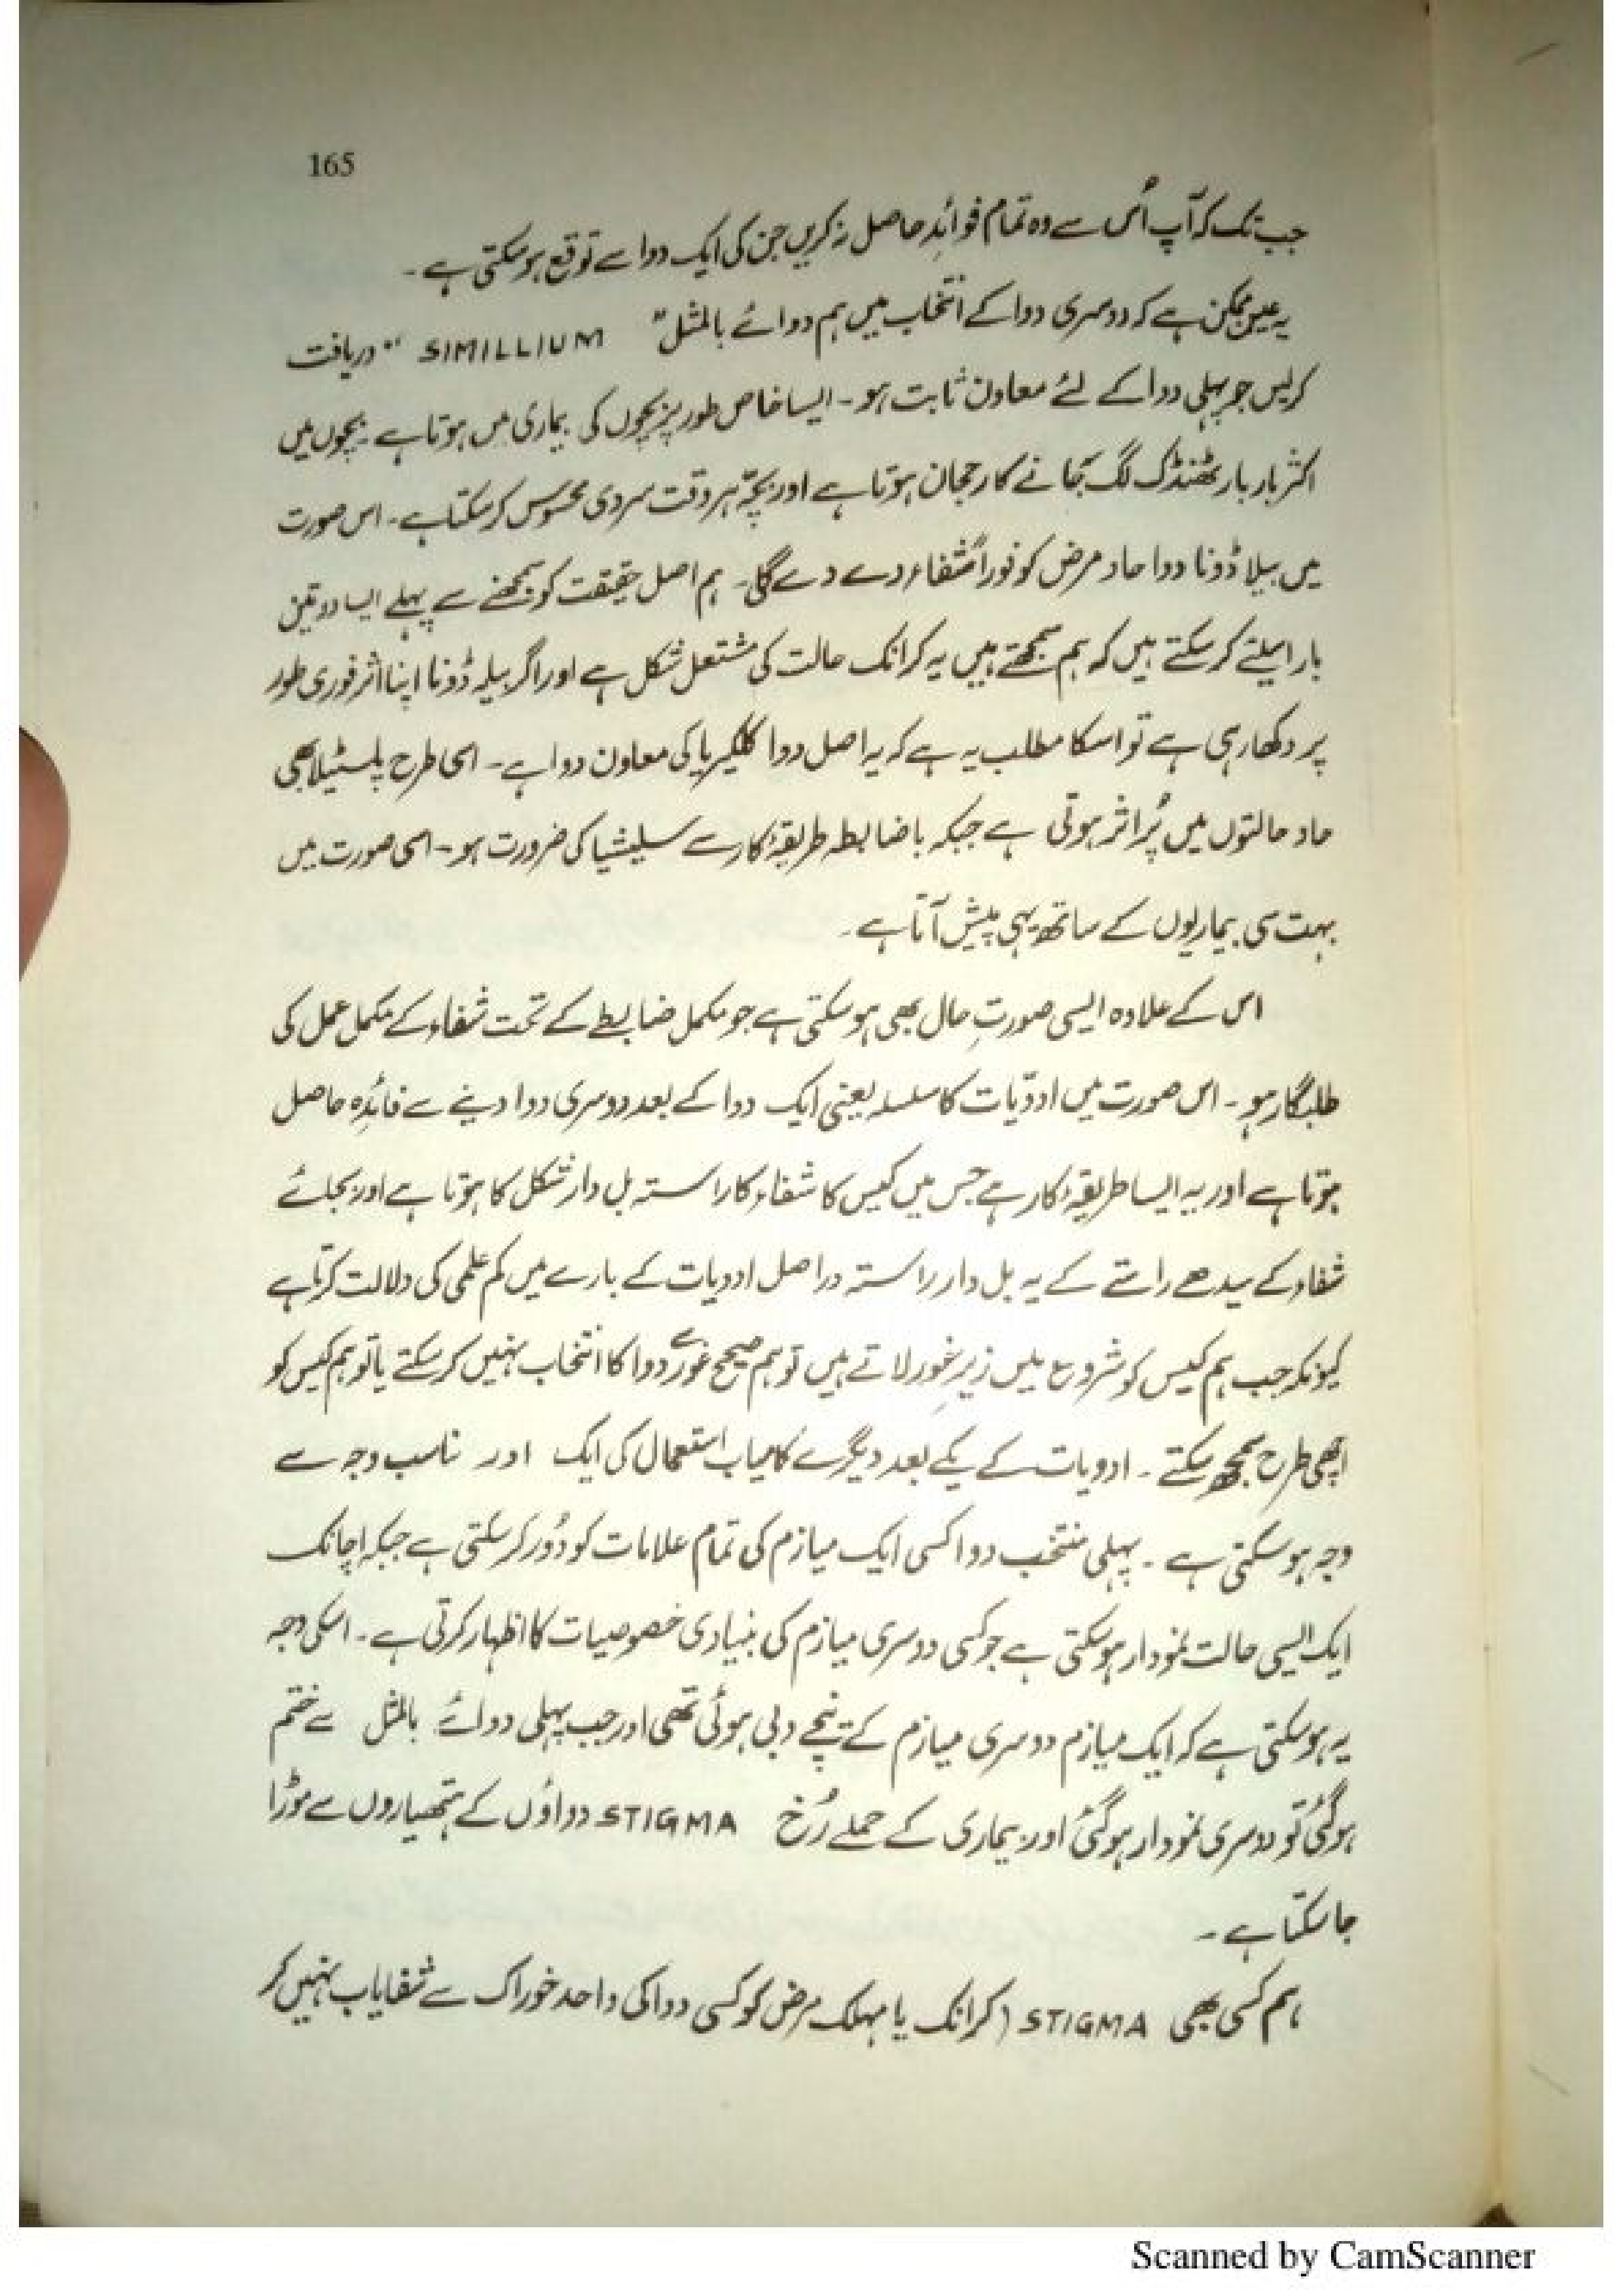 165
جب تک کہ آپ اُس سے وہ تمام فوائدِ حاصل نہ کریں جن کی ایک دوا سے توقع ہو سکتی ہے ۔
یہ عین ممکن ہے کہ دوسری دوا کے انتخاب میں ہم دوائے بالمثل " SIMILLIUM " دریافت
کرلیں جو پہلی دوا کے لئے معاون ثابت ہو ۔ ایسا خاص طور پر بچوں کی بیماری میں ہوتا ہے ۔ بچوں میں
اکثر بار بار ٹھنڈک لگ جانے کا رحجان ہوتا ہے اور بچّہ ہر وقت سردی محسوس کر سکتا ہے ۔ اس صورت
میں بیلا ڈونا دوا حاد مرض کو فوراً شفاء دے دے گی ۔ ہم اصل حقیقت کو سمجھنے سے پہلے ایسا دو تین
بار اسلئے کر سکتے ہیں کہ ہم سمجھتے ہیں یہ کرانک حالت کی مشتعل شکل ہے اور اگر بیلہ ڈونا اپنا اثر فوری طور
پر دکھا رہی ہے تو اسکا مطلب یہ ہے کہ یہ اصل دوا کلکیریا کی معاون دوا ہے ۔ اسی طرح پلسٹیلا بھی
حاد حالتوں میں پُر اثر ہوتی ہے جبکہ باضابطہ طریقۂ کار سے سلیشیا کی ضرورت ہو ۔ اسی صورت میں
بہت سی بیماریوں کے ساتھ یہی پیش آتا ہے ۔
اس کے علاوہ ایسی صورتِ حال بھی ہو سکتی ہے جو مکمل ضابطے کے تحت شفاء کے مکمل عمل کی
طلبگار ہو ۔ اس صورت میں ادویّات کا سلسلہ یعنی ایک دوا کے بعد دوسری دوا دینے سے فائدہ حاصل
ہوتا ہے اور یہ ایسا طریقۂ کار ہے جس میں کیس کا شفاء کا راستہ بل دار شکل کا ہوتا ہے اور بجائے
شفاء کے سیدھے راستے کے یہ بل دار راستہ دراصل ادویات کے بارے میں کم علمی کی دلالت کرتا ہے
کیونکہ جب ہم کیس کو شروع میں زیرِ غور لاتے ہیں تو ہم صیحح غور سے دوا کا انتخاب نہیں کر سکتے یا تو ہم کیس کو
اچھی طرح سمجھ سکتے ۔ ادویات کے یکے بعد دیگرے کامیاب استعمال کی ایک اور ناسب وجہ سے
وجہ ہو سکتی ہے ۔ پہلی منتخب دوا کسی ایک میازم کی تمام علامات کو دُور کر سکتی ہے جبکہ اچانک
ایک ایسی حالت نمودار ہو سکتی ہے جو کسی دوسری میازم کی بنیادی خصوصیات کا اظہار کرتی ہے ۔ اسکی وجہ
یہ ہو سکتی ہے کہ ایک میازم دوسری میازم کے نیچے دبی ہوئی تھی اور جب پہلی دوائے بالمثل سے ختم
ہو گئی تو دوسری نمودار ہو گئی اور بیماری کے حملے رُخ STIGMA دواؤں کے ہتھیاروں سے موڑا
جا سکتا ہے ۔
ہم کسی بھی STIGMA ( کرانک یا مہلک مرض کو کسی دوا کی واحد خوراک سے شفایاب نہیں کر
Scanned by CamScanner